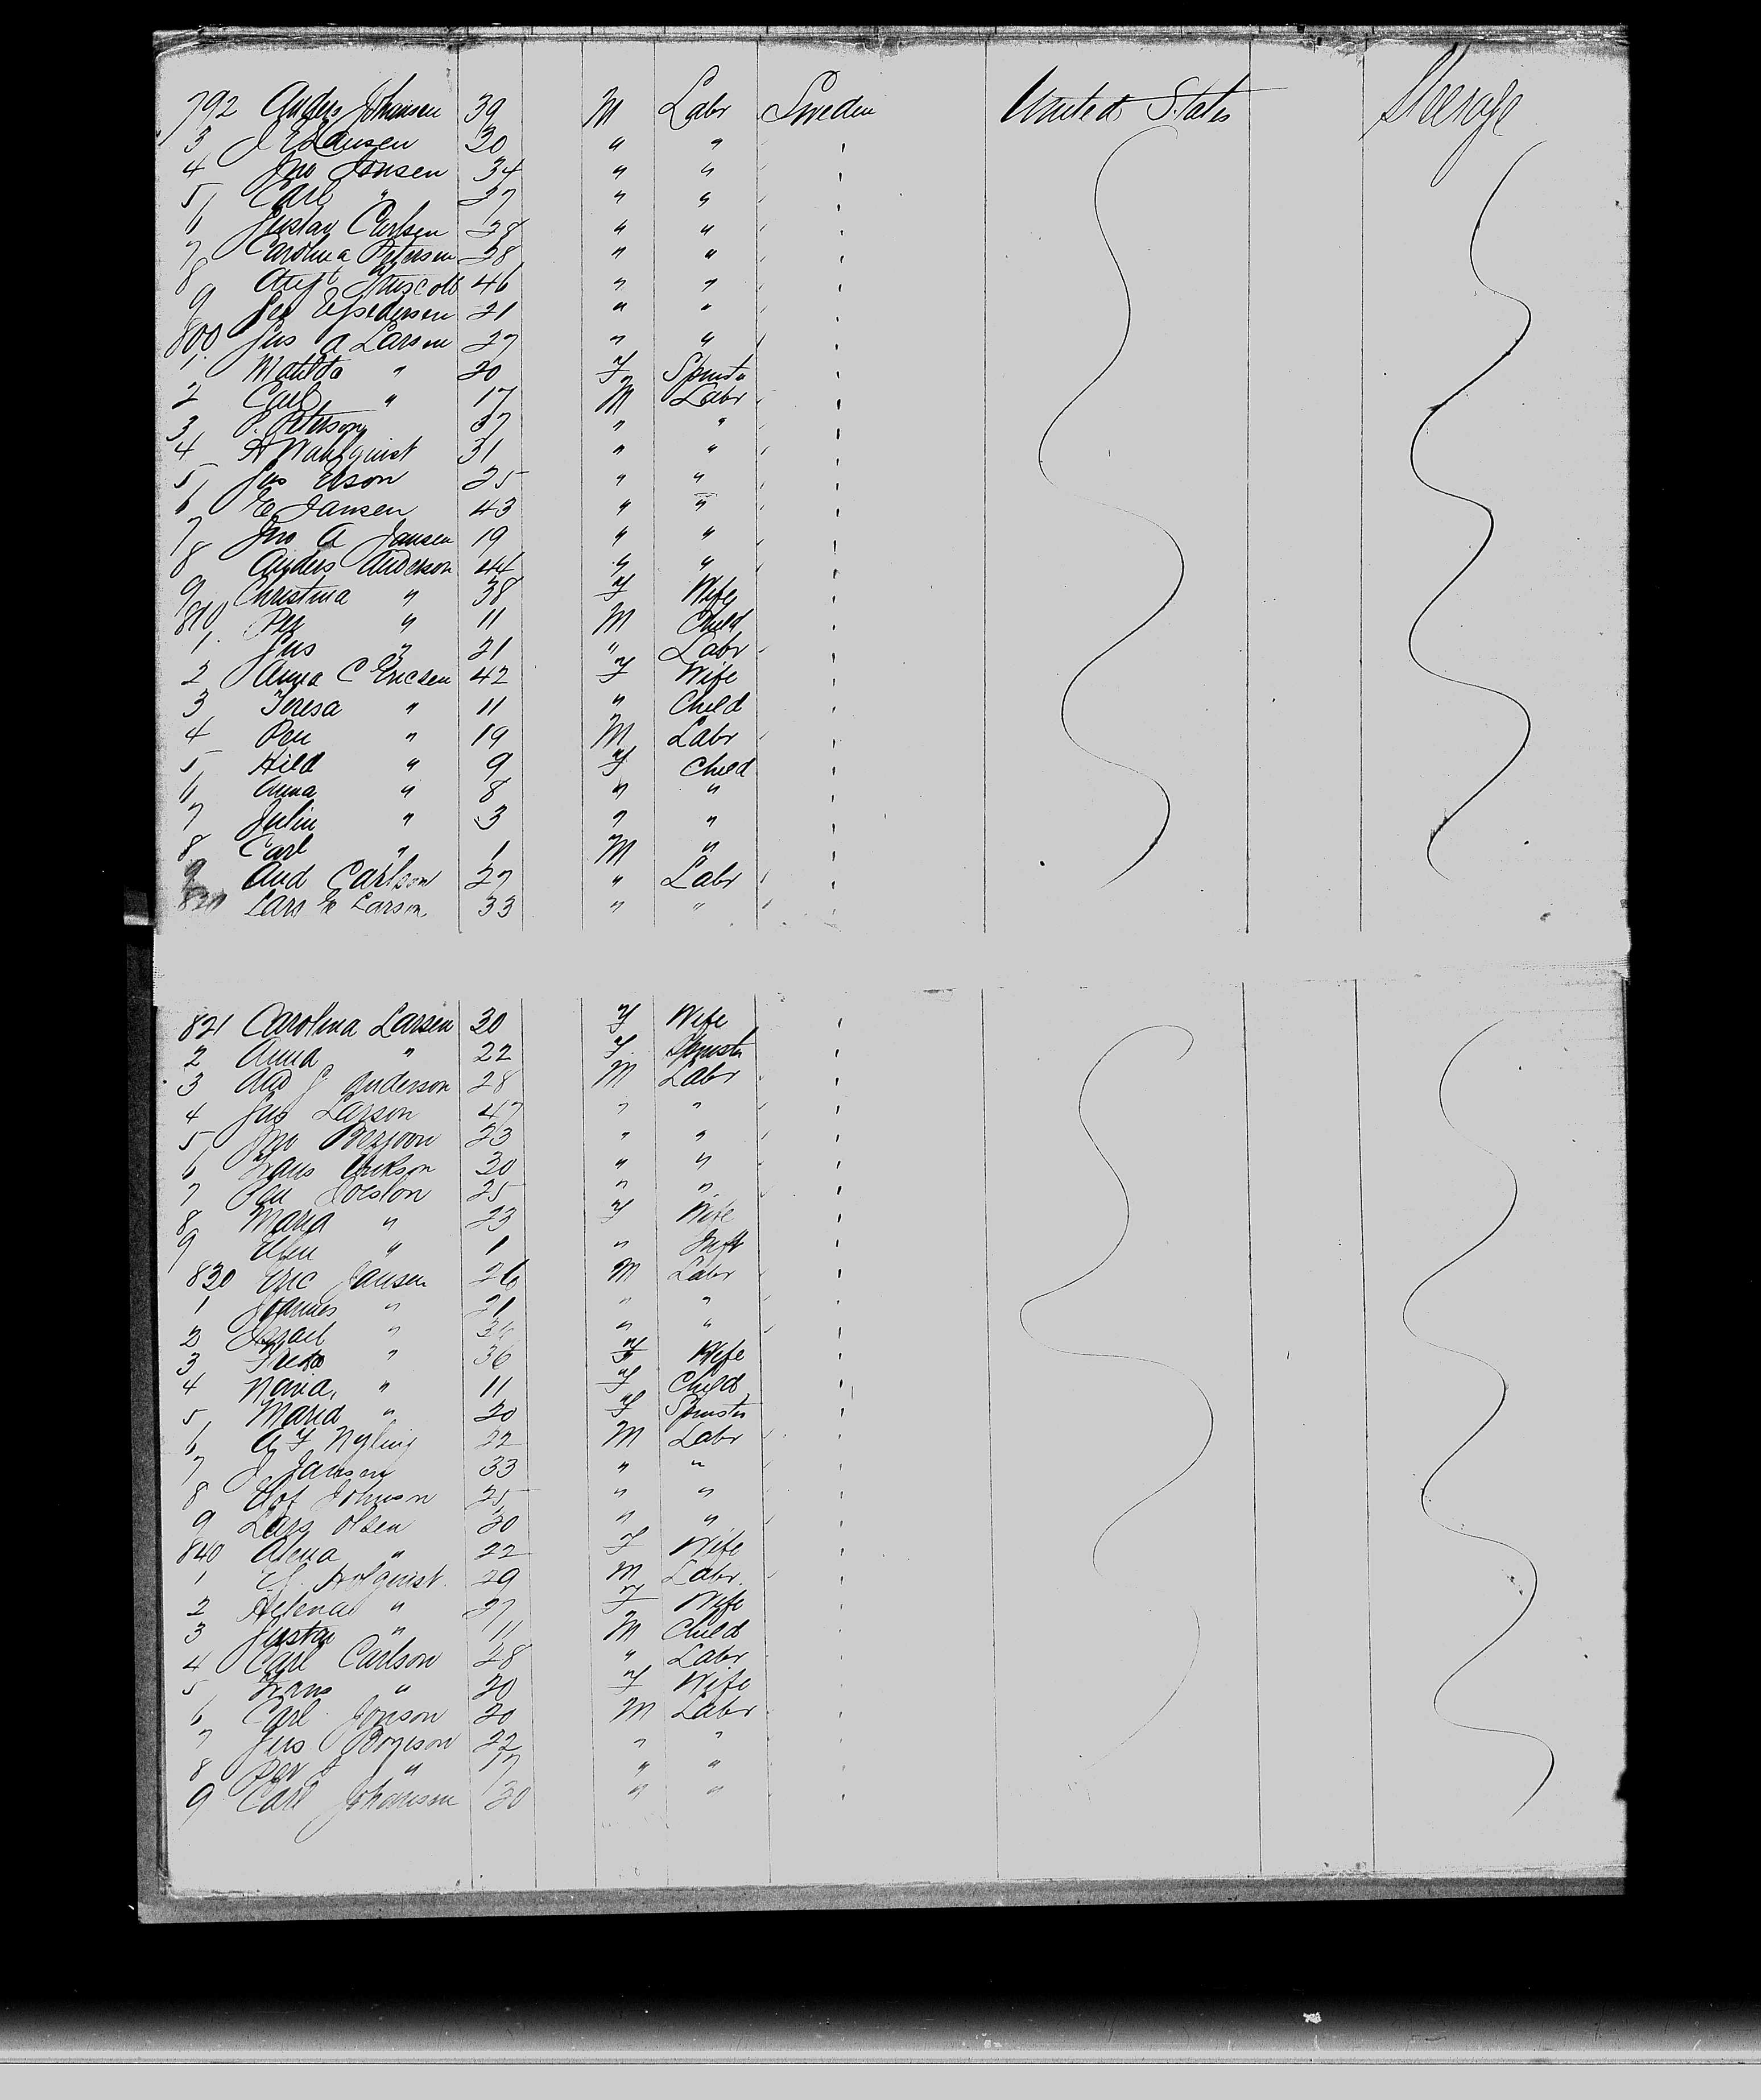 792 Anders Johansen 39 M Labr Sweden United States Steerage
3 J E Lausen 30 " " "
4 Jno Jonsen 34 " " "
5 Carl " 27 " " "
6 Gustav Carlsen 28 " " "
7 Carolina Petersen 28 " " "
8 46 " " "
9 21 " " "
800 Gus A Larsen 27 " " "
1 Matilda " 20 F Spinstr "
2 Carl " 17 M Labr "
3 P. Peterson 37 " " "
4 A Wahlquist 31 " " "
5 Gus Elson 25 " " "
6 E Jansen 43 " " "
7 Jno A Jansen 19 " " "
8 Anders Anderson 44 " " "
9 Christina " 38 F Wife "
810 Per " 11 M Child "
1 Gus " 21 " Labr "
2 Anna C Ericsen 42 F Wife "
3 Teresa " 11 " Child "
4 Per " 19 M Labr "
5 Hild " 9 F Child "
6 Anna " 8 " " "
7 Julin " 3 " " "
8 Carl " 1 M " "
9 And Carlson 27 " Labr "
820 Lars E Larson 33 " "
821 Carolina Larsen 30 F Wife "
2 Anna " 22 F Spinstr "
3 And J Anderson 28 M Labr "
4 Gus Larson 47 " " "
5 Jno 23 " " "
6 Frans Erikson 30 " " "
7 25 " " "
8 Maria " 23 F Wife "
9 Ellen " 1 " Inft "
830 Eric Jansen 26 M Labr "
1 Johannes " 21 " " "
2 Israel " " " "
3 Freda " 36 F Wife "
4 Naria " 11 F Child "
5 Maria " 20 F Spinstr "
6 A F Nyling 22 M Labr "
7 J Jansen 33 " " "
8 Olof Johnson 25 " " "
9 Lars Olsen 30 " " "
840 Alena " 22 F Wife "
1 Hofquist 29 M Labr "
2 Helena " 27 F Wife "
3 Gustav " 11 M Child "
4 Carl Carlson 28 " Labr "
5 " 20 F Wife "
6 Carl Jonson 20 M Labr "
7 Gus 22 " " "
8 Per " 17 " " "
9 Carl Johanson 30 " " "